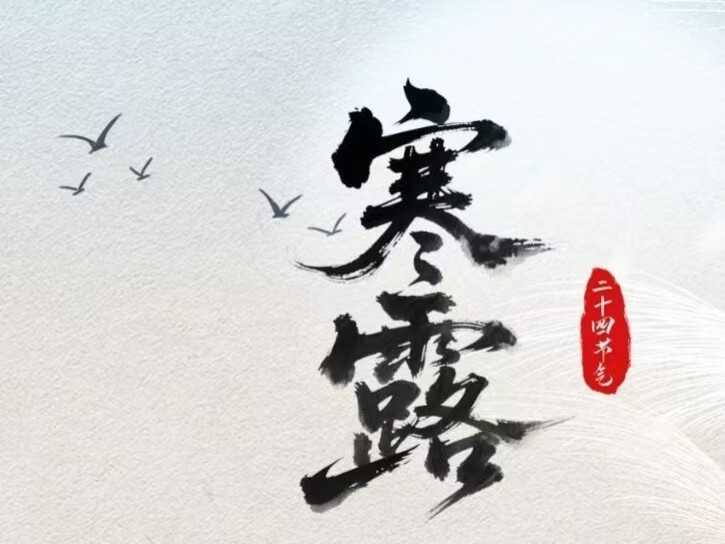 寒露
二十四节气